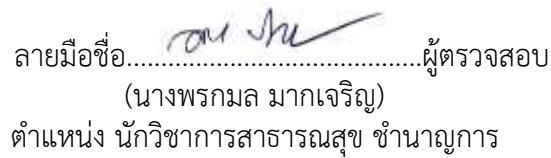 ลายมือชื่อ...........................................ผู้ตรวจสอบ
(นางพรกมล มากเจริญ)
ตำแหน่ง นักวิชาการสาธารณสุข ชำนาญการ